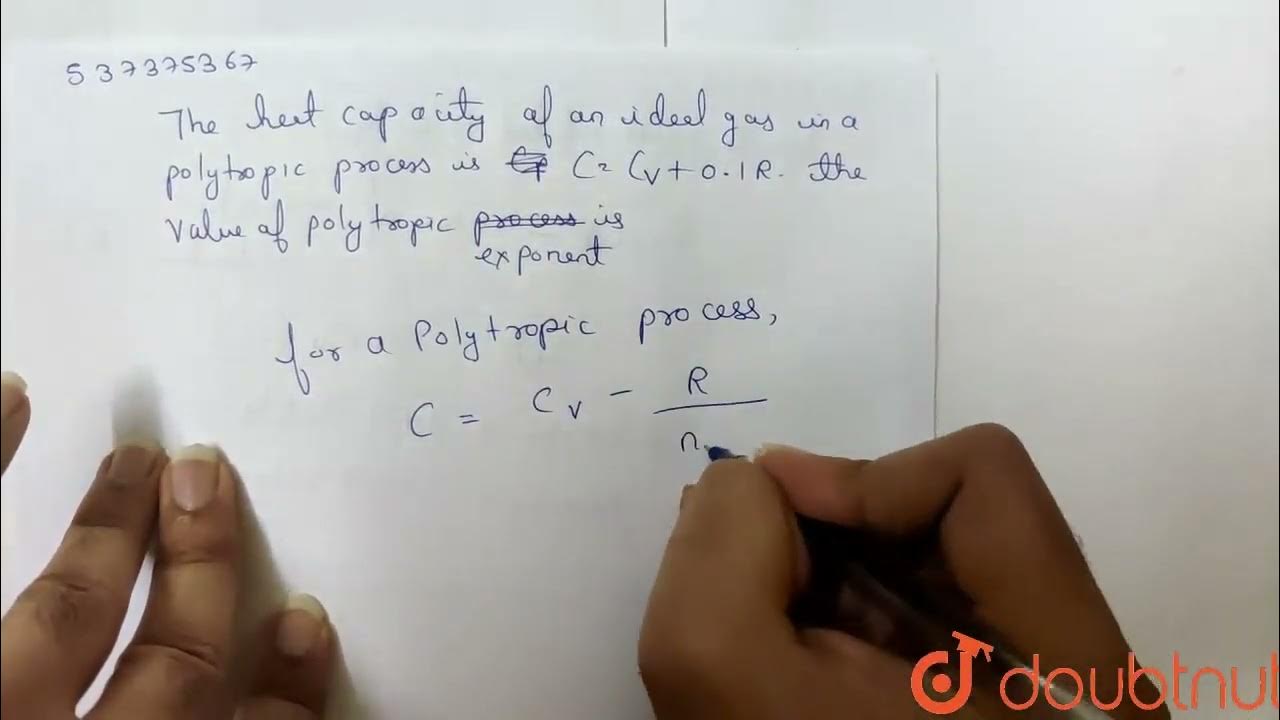 537375367
The heat capacity of an ideal gas in a
polytropic process is C = Cv + 0.1R. the
value of polytropic process is
exponent
for a Polytropic process,
C = Cv - R
n
doubtnut